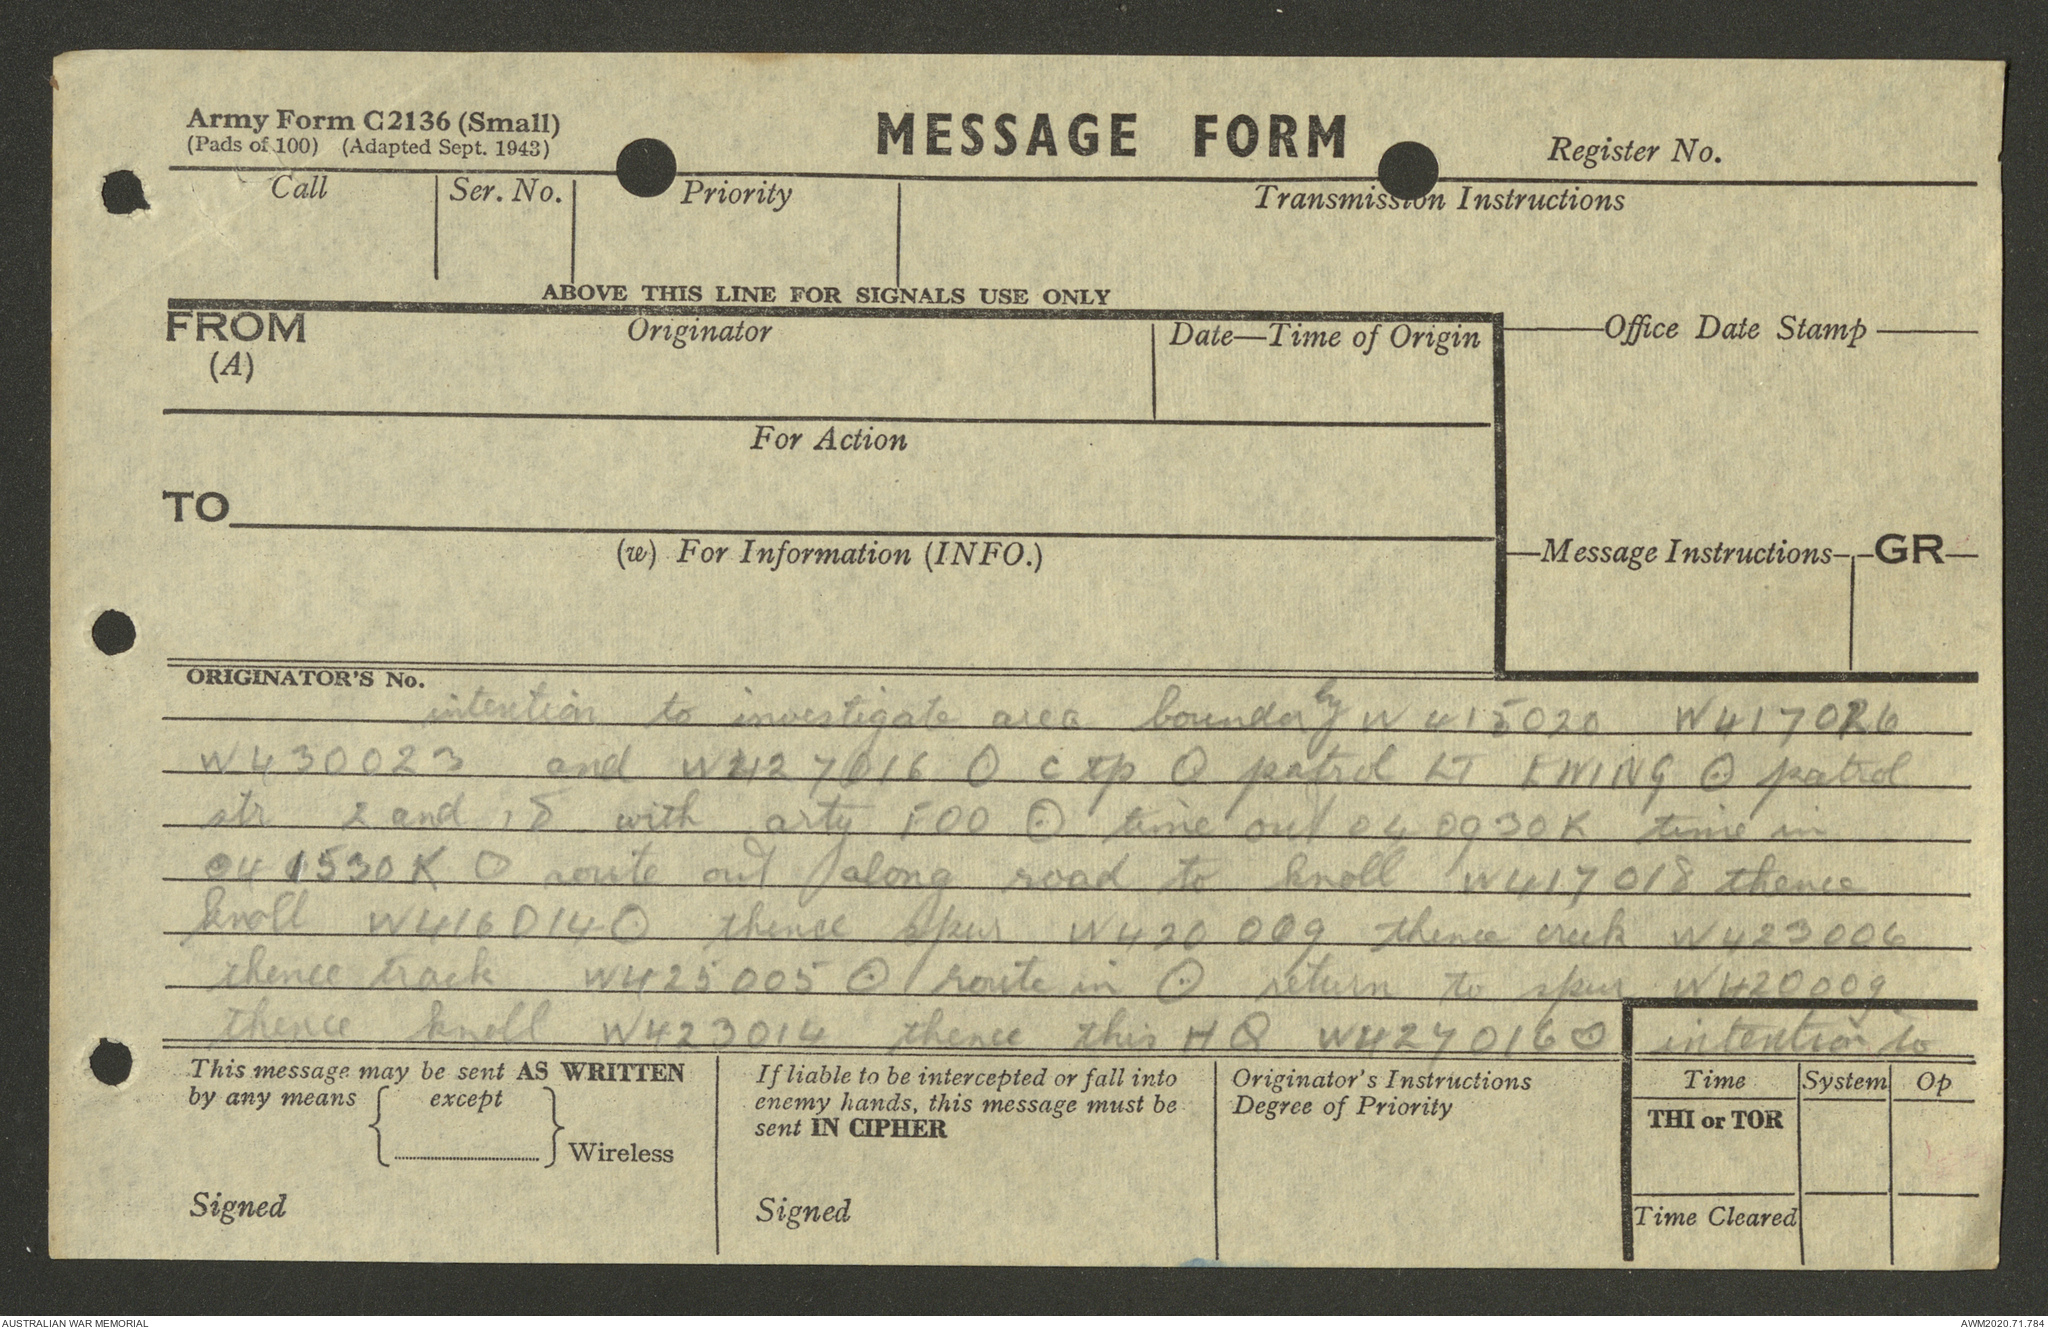 Army Form C2136 (Small)
(Pads of 100) (Adapted Sept. 1943)
MESSAGE FORM
Register No.
Call
Ser. No.
Priority
Transmission Instructions
ABOVE THIS LINE FOR SIGNALS USE ONLY
FROM
(A)
Originator
Date—Time of Origin
Office Date Stamp
For Action
TO
(w) For Information (INFO.)
Message Instructions
GR
ORIGINATOR'S No.
intention to investigate area boundary W415020 W417026
W430023 and W427016 ⊙ C tp ⊙ patrol LT EWING ⊙ patrol
str 2 and 18 with arty FOO ⊙ time out 040930K time in
041530K ⊙ route out along road to knoll W417018 thence
knoll W416014 ⊙ thence spur W420009 thence creek W423006
thence track W425005 ⊙ route in ⊙ return to spur W420009
thence knoll W423014 thence this HQ W427016 ⊙ intention to
This message may be sent AS WRITTEN
by any means except
Wireless
Signed
If liable to be intercepted or fall into
enemy hands, this message must be
sent IN CIPHER
Signed
Originator's Instructions
Degree of Priority
Time
System
Op
THI or TOR
Time Cleared
AUSTRALIAN WAR MEMORIAL
AWM2020.71.784